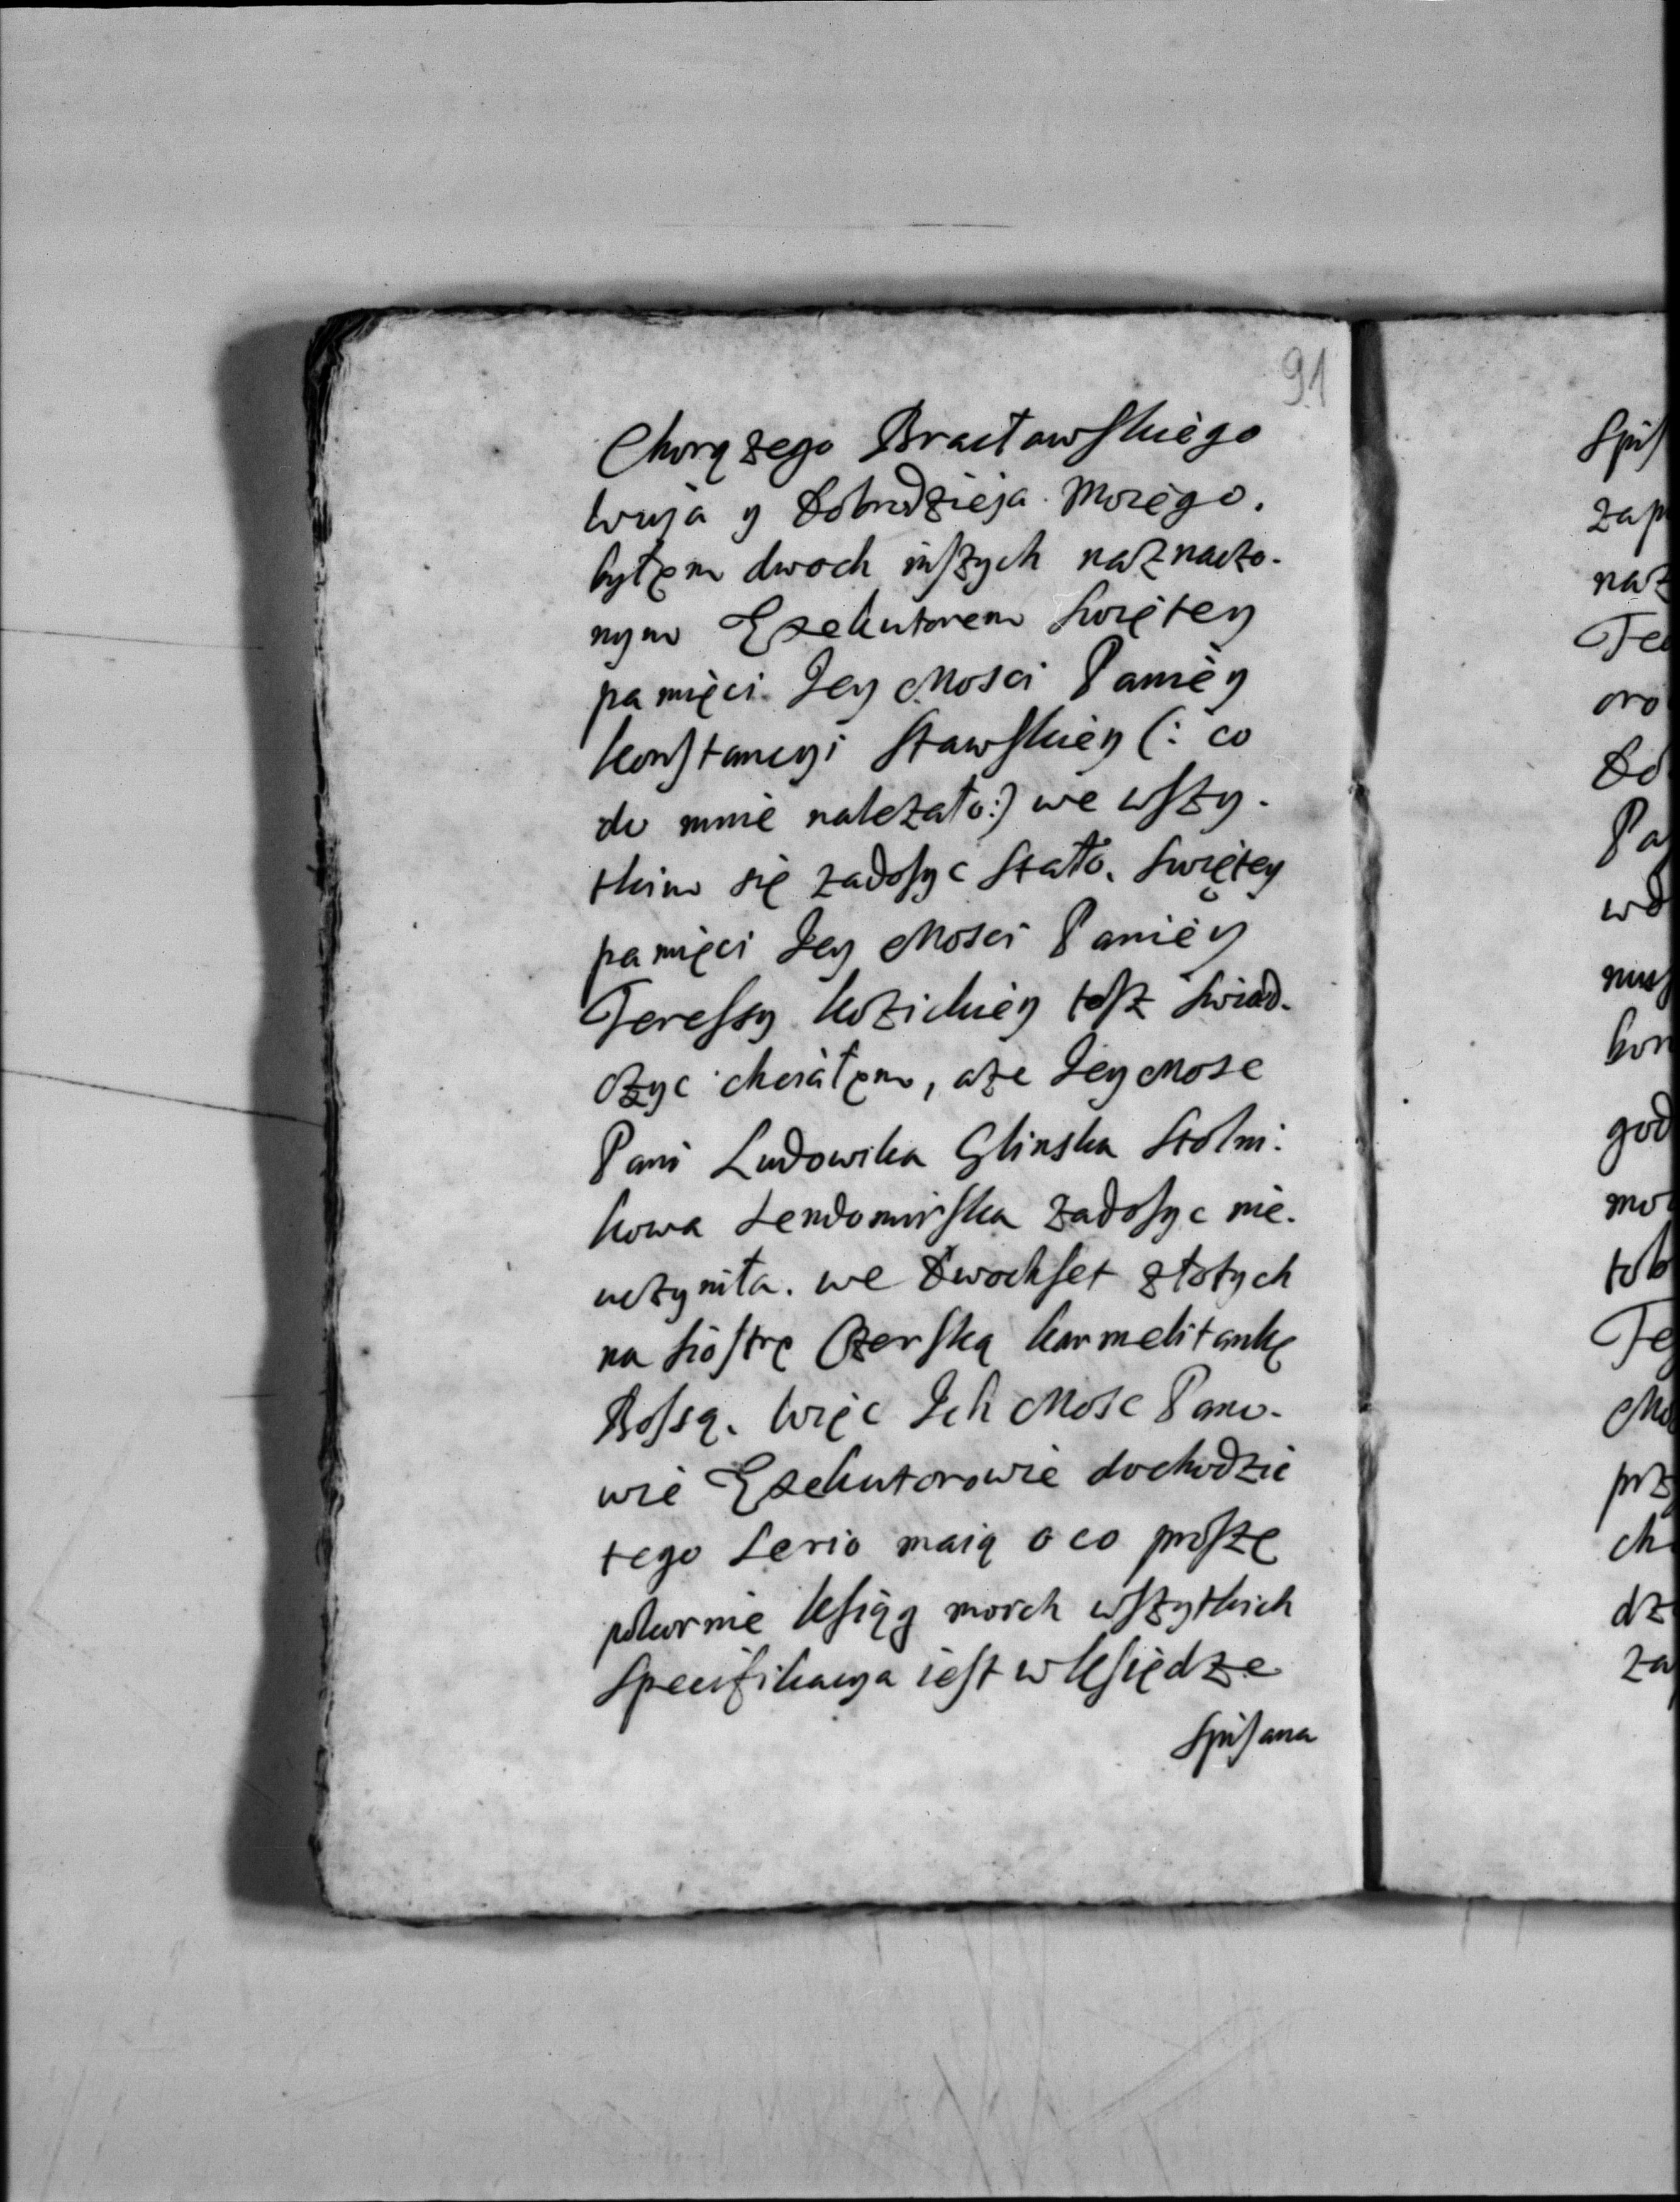 91
Chorązego Bracławskiego
Wuja y Dobrodzieja Moiego.
byłem dwoch inszych naznaczo-
nym Exekutorem Swiętey
pamięci Jey Mosci Paniey
Konstancyi Stawskiey (: co
do mnie nalezało :) we wszy-
tkim się zadosyc stało. Swiętey
pamięci Jey Mosci Paniey
Teressy Kozickiey tesz swiad-
czyc chciałem, aze Jey Mosc
Pani Ludowika Glinska Stolni-
kowa Sendomirska zadosyc nie-
uczyniła. we Dwochset złotych
na Siostrę Czerską Karmelitankę
Bossą. Więc Ich Mosc Pano-
wie Exekutorowie dochodzic
tego serio maią o co proszę
pokornie Ksiąg moich wszytkich
Specifikacya iest w Ksiedze
Spisana